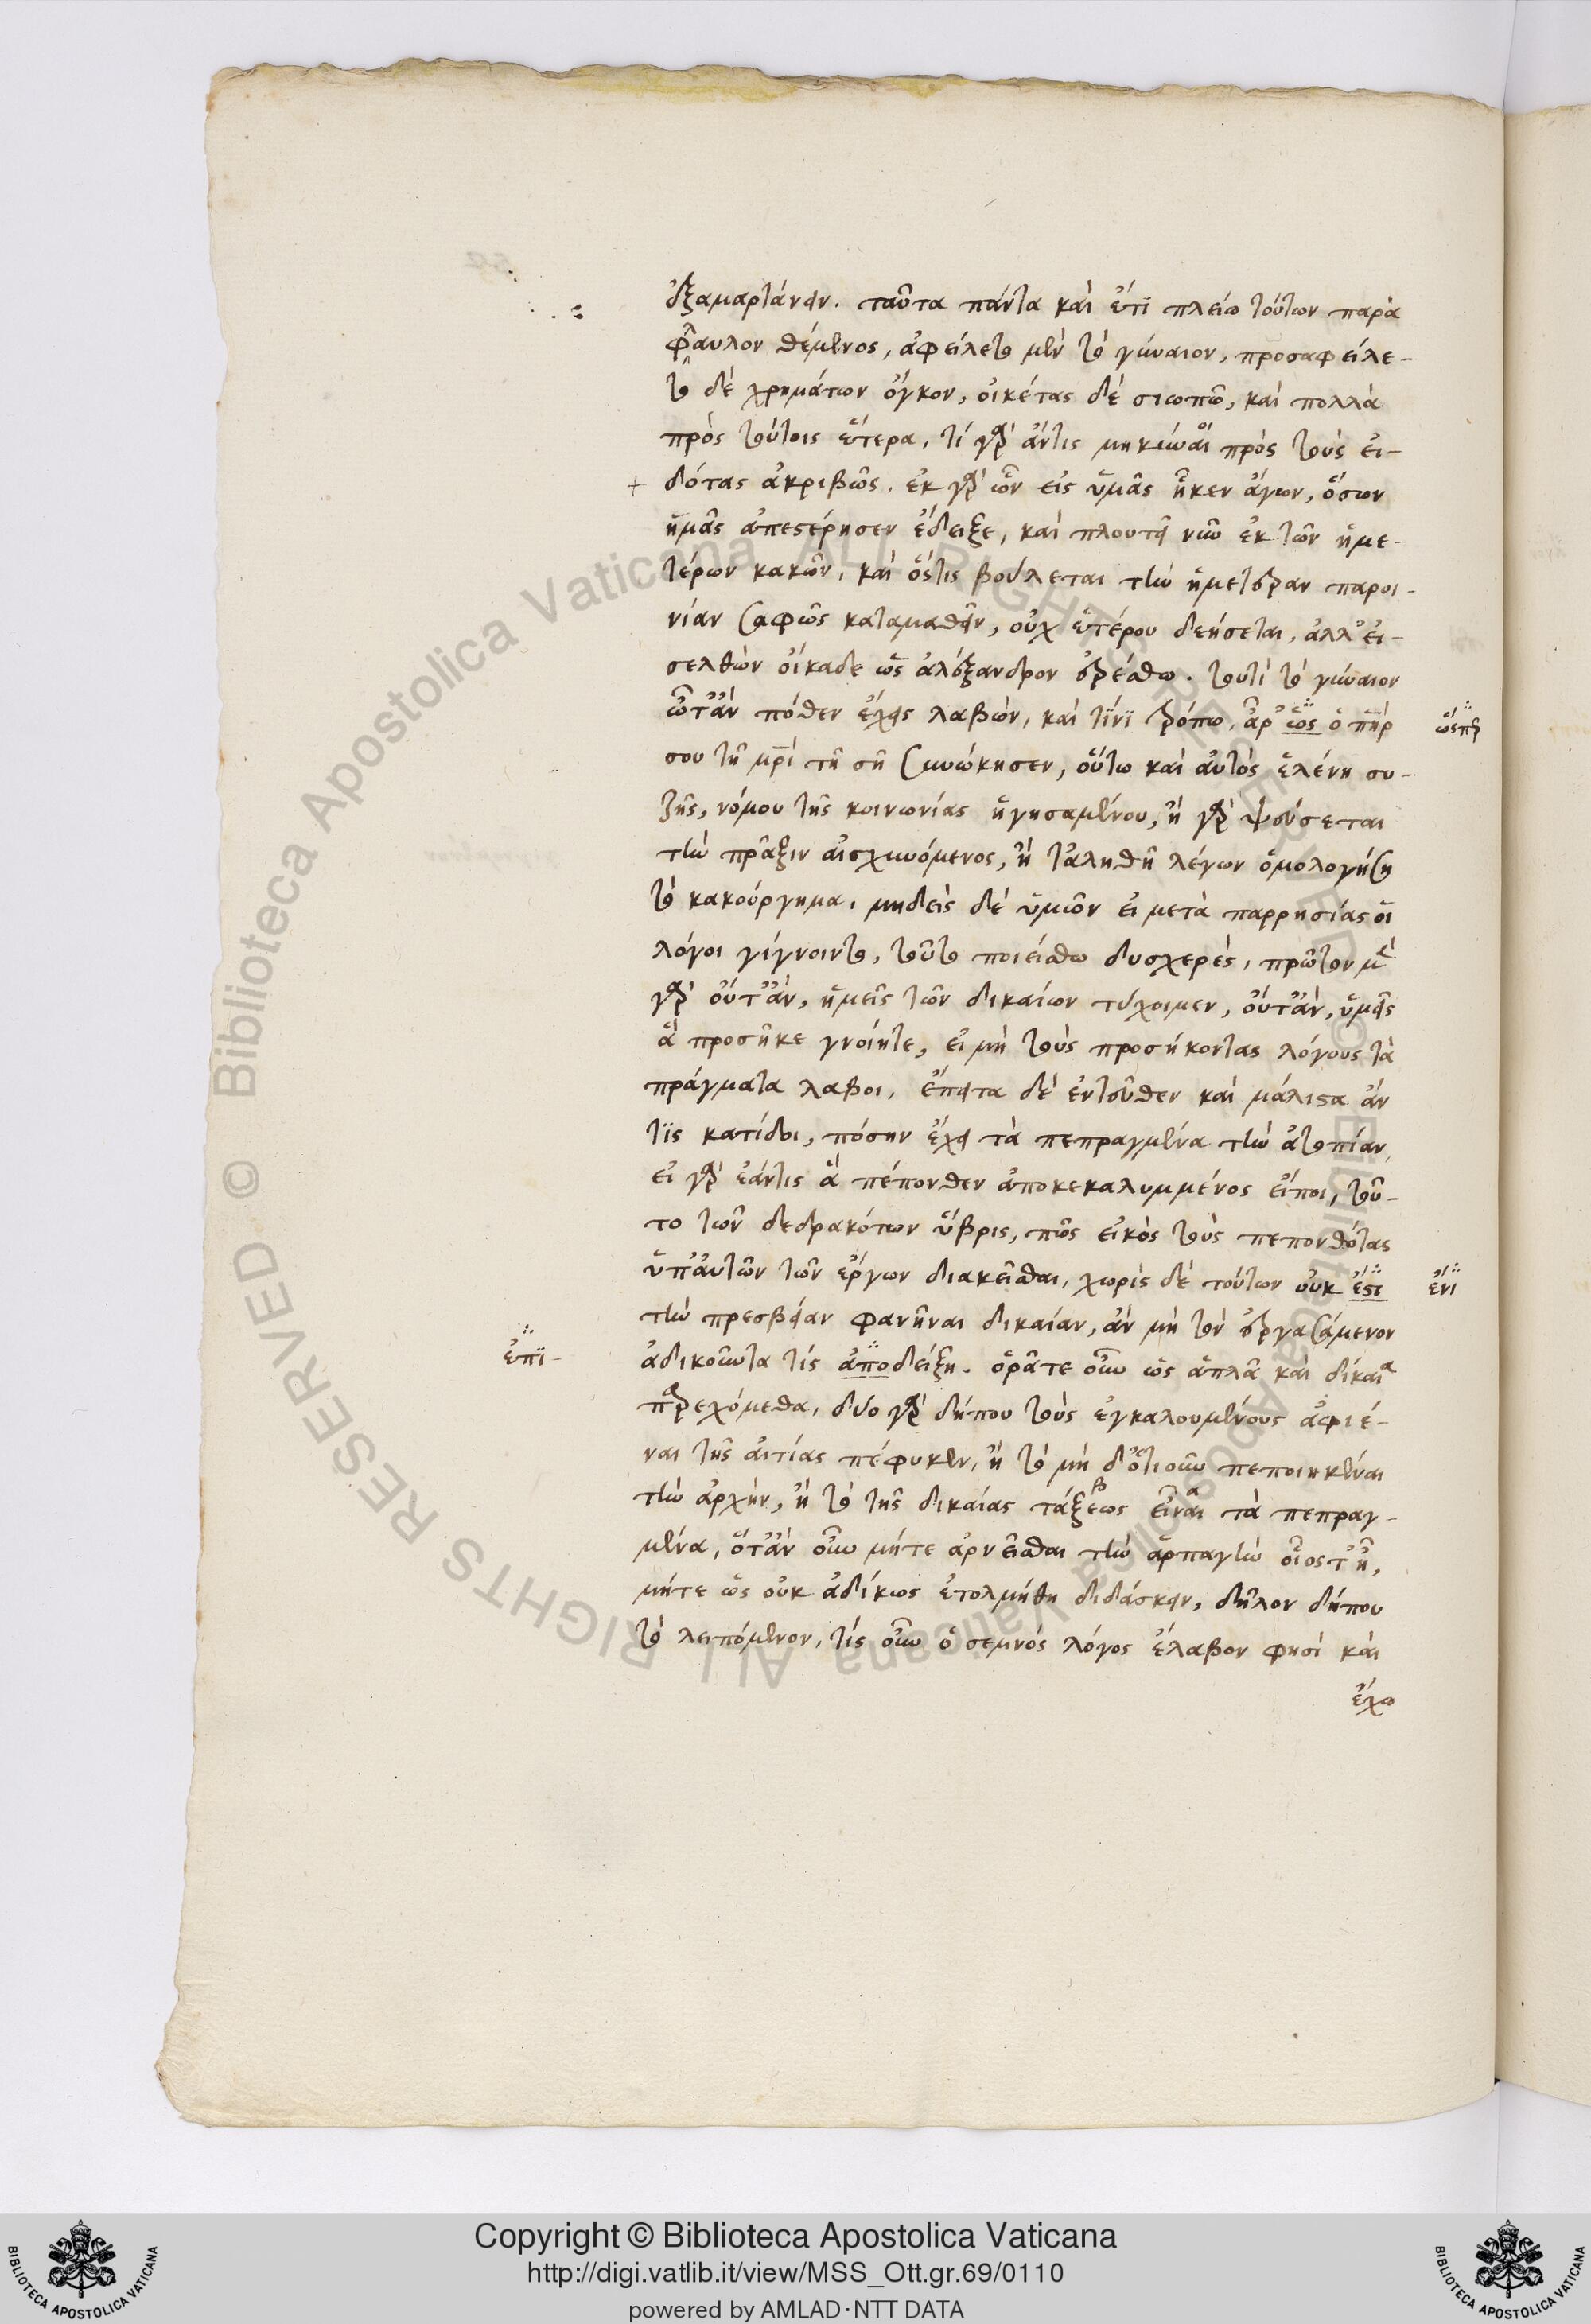 ἐξαμαρτάνειν. ταῦτα πάντα καὶ ἔτι πλείω τούτων παρὰ
φαῦλον θέμενος, ἀφείλετο μὲν τὸ γύναιον, προσαφείλε-
το δὲ χρημάτων ὄγκον, οἰκέτας δὲ σιωπῶ, καὶ πολλὰ
πρὸς τούτοις ἕτερα, τί γὰρ ἄντις μηκύνοι πρὸς τοὺς εἰ-
+ δότας ἀκριβῶς. ἐκ γὰρ ὧν εἰς ὑμᾶς ἧκεν ἄγων, ὅσων
ἡμᾶς ἀπεστέρησεν ἔδειξε, καὶ πλουτεῖ νῦν ἐκ τῶν ἡμε-
τέρων κακῶν, καὶ ὅστις βούλεται τὴν ἡμετέραν παροι-
νίαν σαφῶς καταμαθεῖν, οὐχ ἑτέρου δεήσεται, ἀλλ' εἰ-
σελθὼν οἴκαδε ὡς ἀλέξανδρον ἐρέσθω. τουτὶ τὸ γύναιον
ὦτἂν πόθεν ἔχεις λαβών, καὶ τίνι τρόπω, ἆρ' ὡς ὁ πηρ
ὥσπερ
σου τῆ μρι τῆ σῆ συνώκησεν, οὕτω καὶ αὐτὸς ἑλένη συ-
ζῆς, νόμου τῆς κοινωνίας ἡγησαμένου, ἢ γὰρ ψεύσεται
τὴν πρᾶξιν αἰσχυνόμενος, ἢ τἀληθῆ λέγων ὁμολογήση
τὸ κακούργημα, μηδεὶς δὲ ὑμῶν εἰ μετὰ παρρησίας οἱ
λόγοι γίγνοιντο, τοῦτο ποιείσθω δυσχερές, πρῶτον μὲν
γὰρ οὔτἂν, ἡμεῖς τῶν δικαίων τύχοιμεν, οὔτἂν, ὑμεῖς
ἃ προσῆκε γνοίητε, εἰ μὴ τοὺς προσήκοντας λόγους τὰ
πράγματα λαβοι, ἔπειτα δὲ ἐντεῦθεν καὶ μάλιστα ἄν
τις κατίδοι, πόσην ἔχει τὰ πεπραγμένα τὴν ἀτοπίαν,
εἰ γὰρ ἐάντις ἃ πέπονθεν ἀποκεκαλυμμένος εἴποι, τοῦ-
το τῶν δεδρακότων ὕβρις, πῶς εἰκὸς τοὺς πεπονθότας
ὑπ' αὐτῶν τῶν ἔργων διακεῖσθαι, χωρὶς δὲ τούτων οὐκ ἔστι
ἔνι
τὴν πρεσβείαν φανῆναι δικαίαν, ἂν μὴ τὸν ἐργασάμενον
ἐπι-
ἀδικοῦντα τίς ἀποδείξη. ὁρᾶτε οὖν ὡς ἁπλᾶ καὶ δίκαια
παρεχόμεθα, δύο γὰρ δήπου τοὺς ἐγκαλουμένους ἀφιέ-
ναι τῆς αἰτίας πέφυκεν, ἢ τὸ μὴ δ' ὁτιοῦν πεποιηκέναι
τὴν ἀρχήν, ἢ τὸ τῆς δικαίας τάξεως εἶναι τὰ πεπραγ-
μένα, ὅτἂν οὖν μήτε ἀρνεῖσθαι τὴν ἁρπαγὴν οἷος τ' ἦ,
μήτε ὡς οὐκ ἀδίκως ἐτολμήθη διδάσκειν, δῆλον δήπου
τὸ λειπόμενον, τίς οὖν ὁ σεμνὸς λόγος ἔλαβον φησὶ καὶ
ἔχω
Copyright © Biblioteca Apostolica Vaticana
http://digi.vatlib.it/view/MSS_Ott.gr.69/0110
powered by AMLAD·NTT DATA